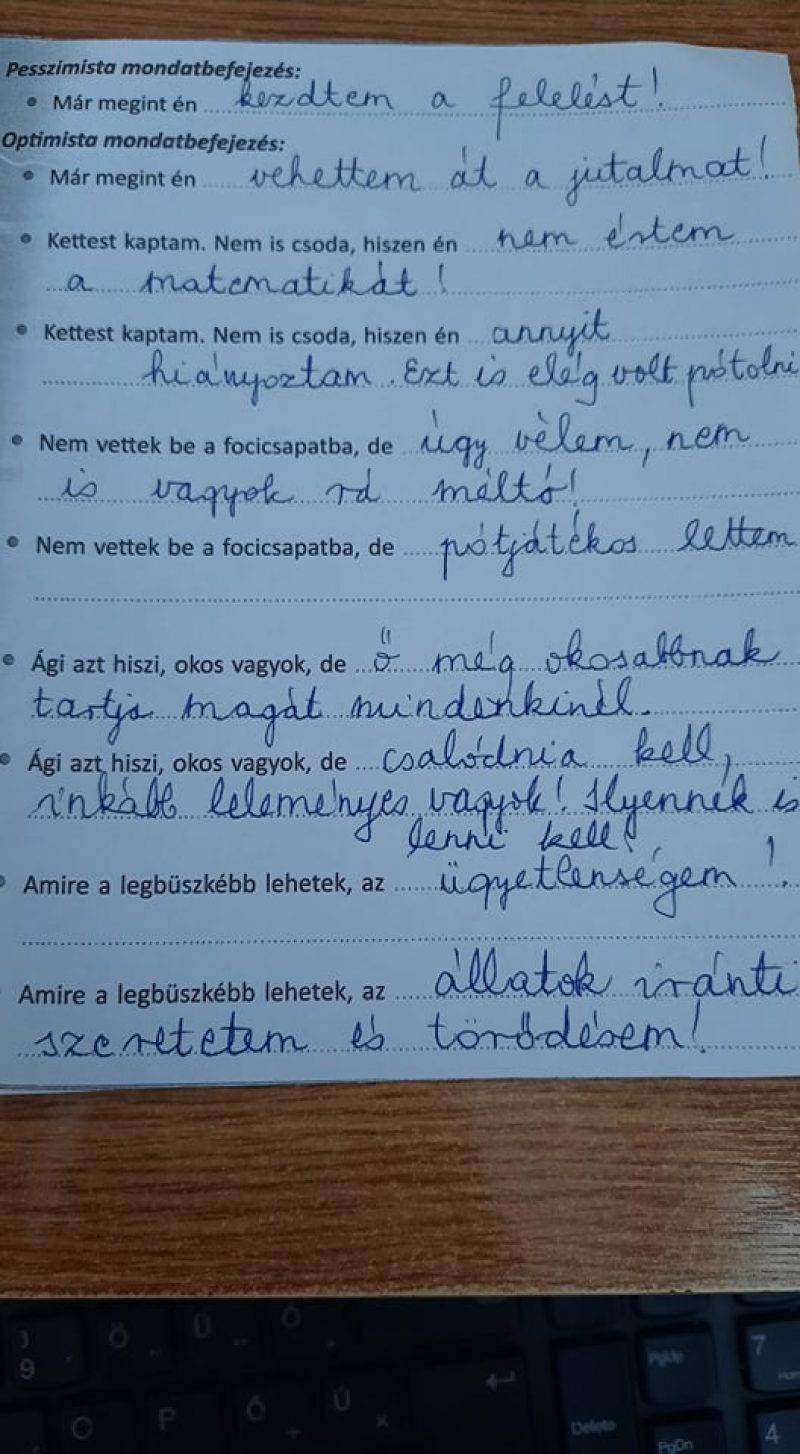 Pesszimista mondatbefejezés:
• Már megint én kezdtem a felelést!
Optimista mondatbefejezés:
• Már megint én vehettem át a jutalmat!
• Kettest kaptam. Nem is csoda, hiszen én nem értem
a matematikát!
• Kettest kaptam. Nem is csoda, hiszen én annyit
hiányoztam. Ezt is elég volt pótolni
• Nem vettek be a focicsapatba, de úgy vélem, nem
is vagyok rá méltó!
• Nem vettek be a focicsapatba, de pótjátékos lettem
• Ági azt hiszi, okos vagyok, de ő még okosabbnak
tartja magát mindenkinél.
• Ági azt hiszi, okos vagyok, de csalódnia kell,
inkább leleményes vagyok! Ilyennek is
lenni kell!
Amire a legbüszkébb lehetek, az ügyetlenségem!
Amire a legbüszkébb lehetek, az állatok iránti
szeretetem és törődésem!
) Ö Ü Ó
9
PgUp 7
O P Ő Ú Delete PgDn 4